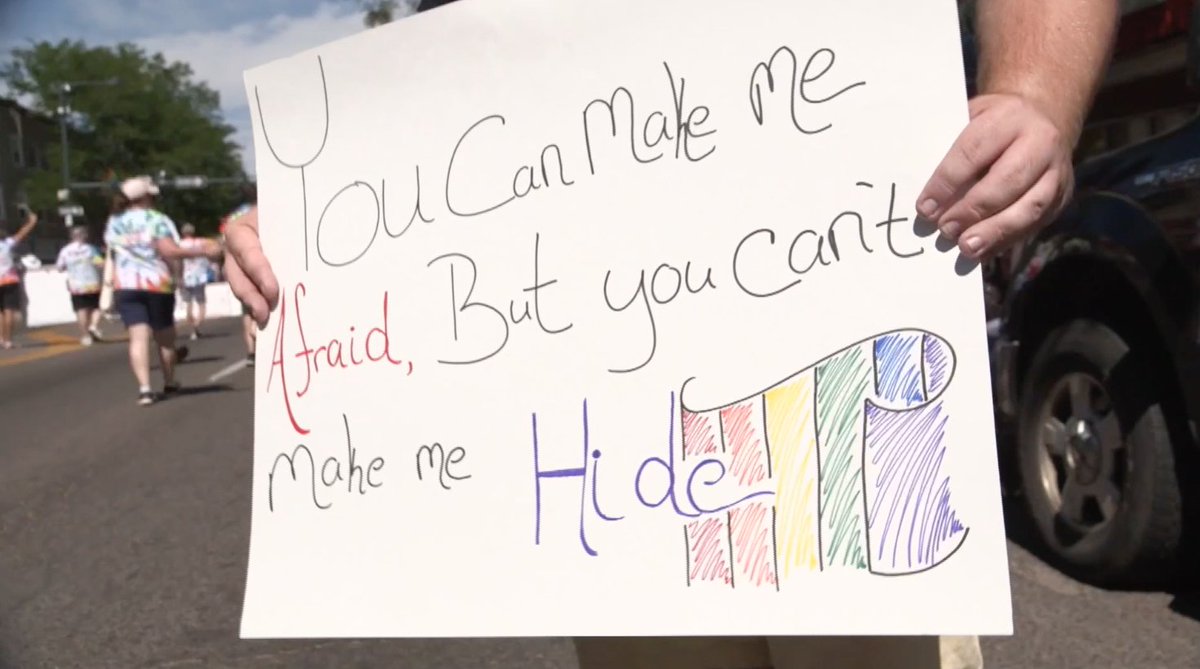 You Can Make Me
Afraid, But you can't
make me Hide